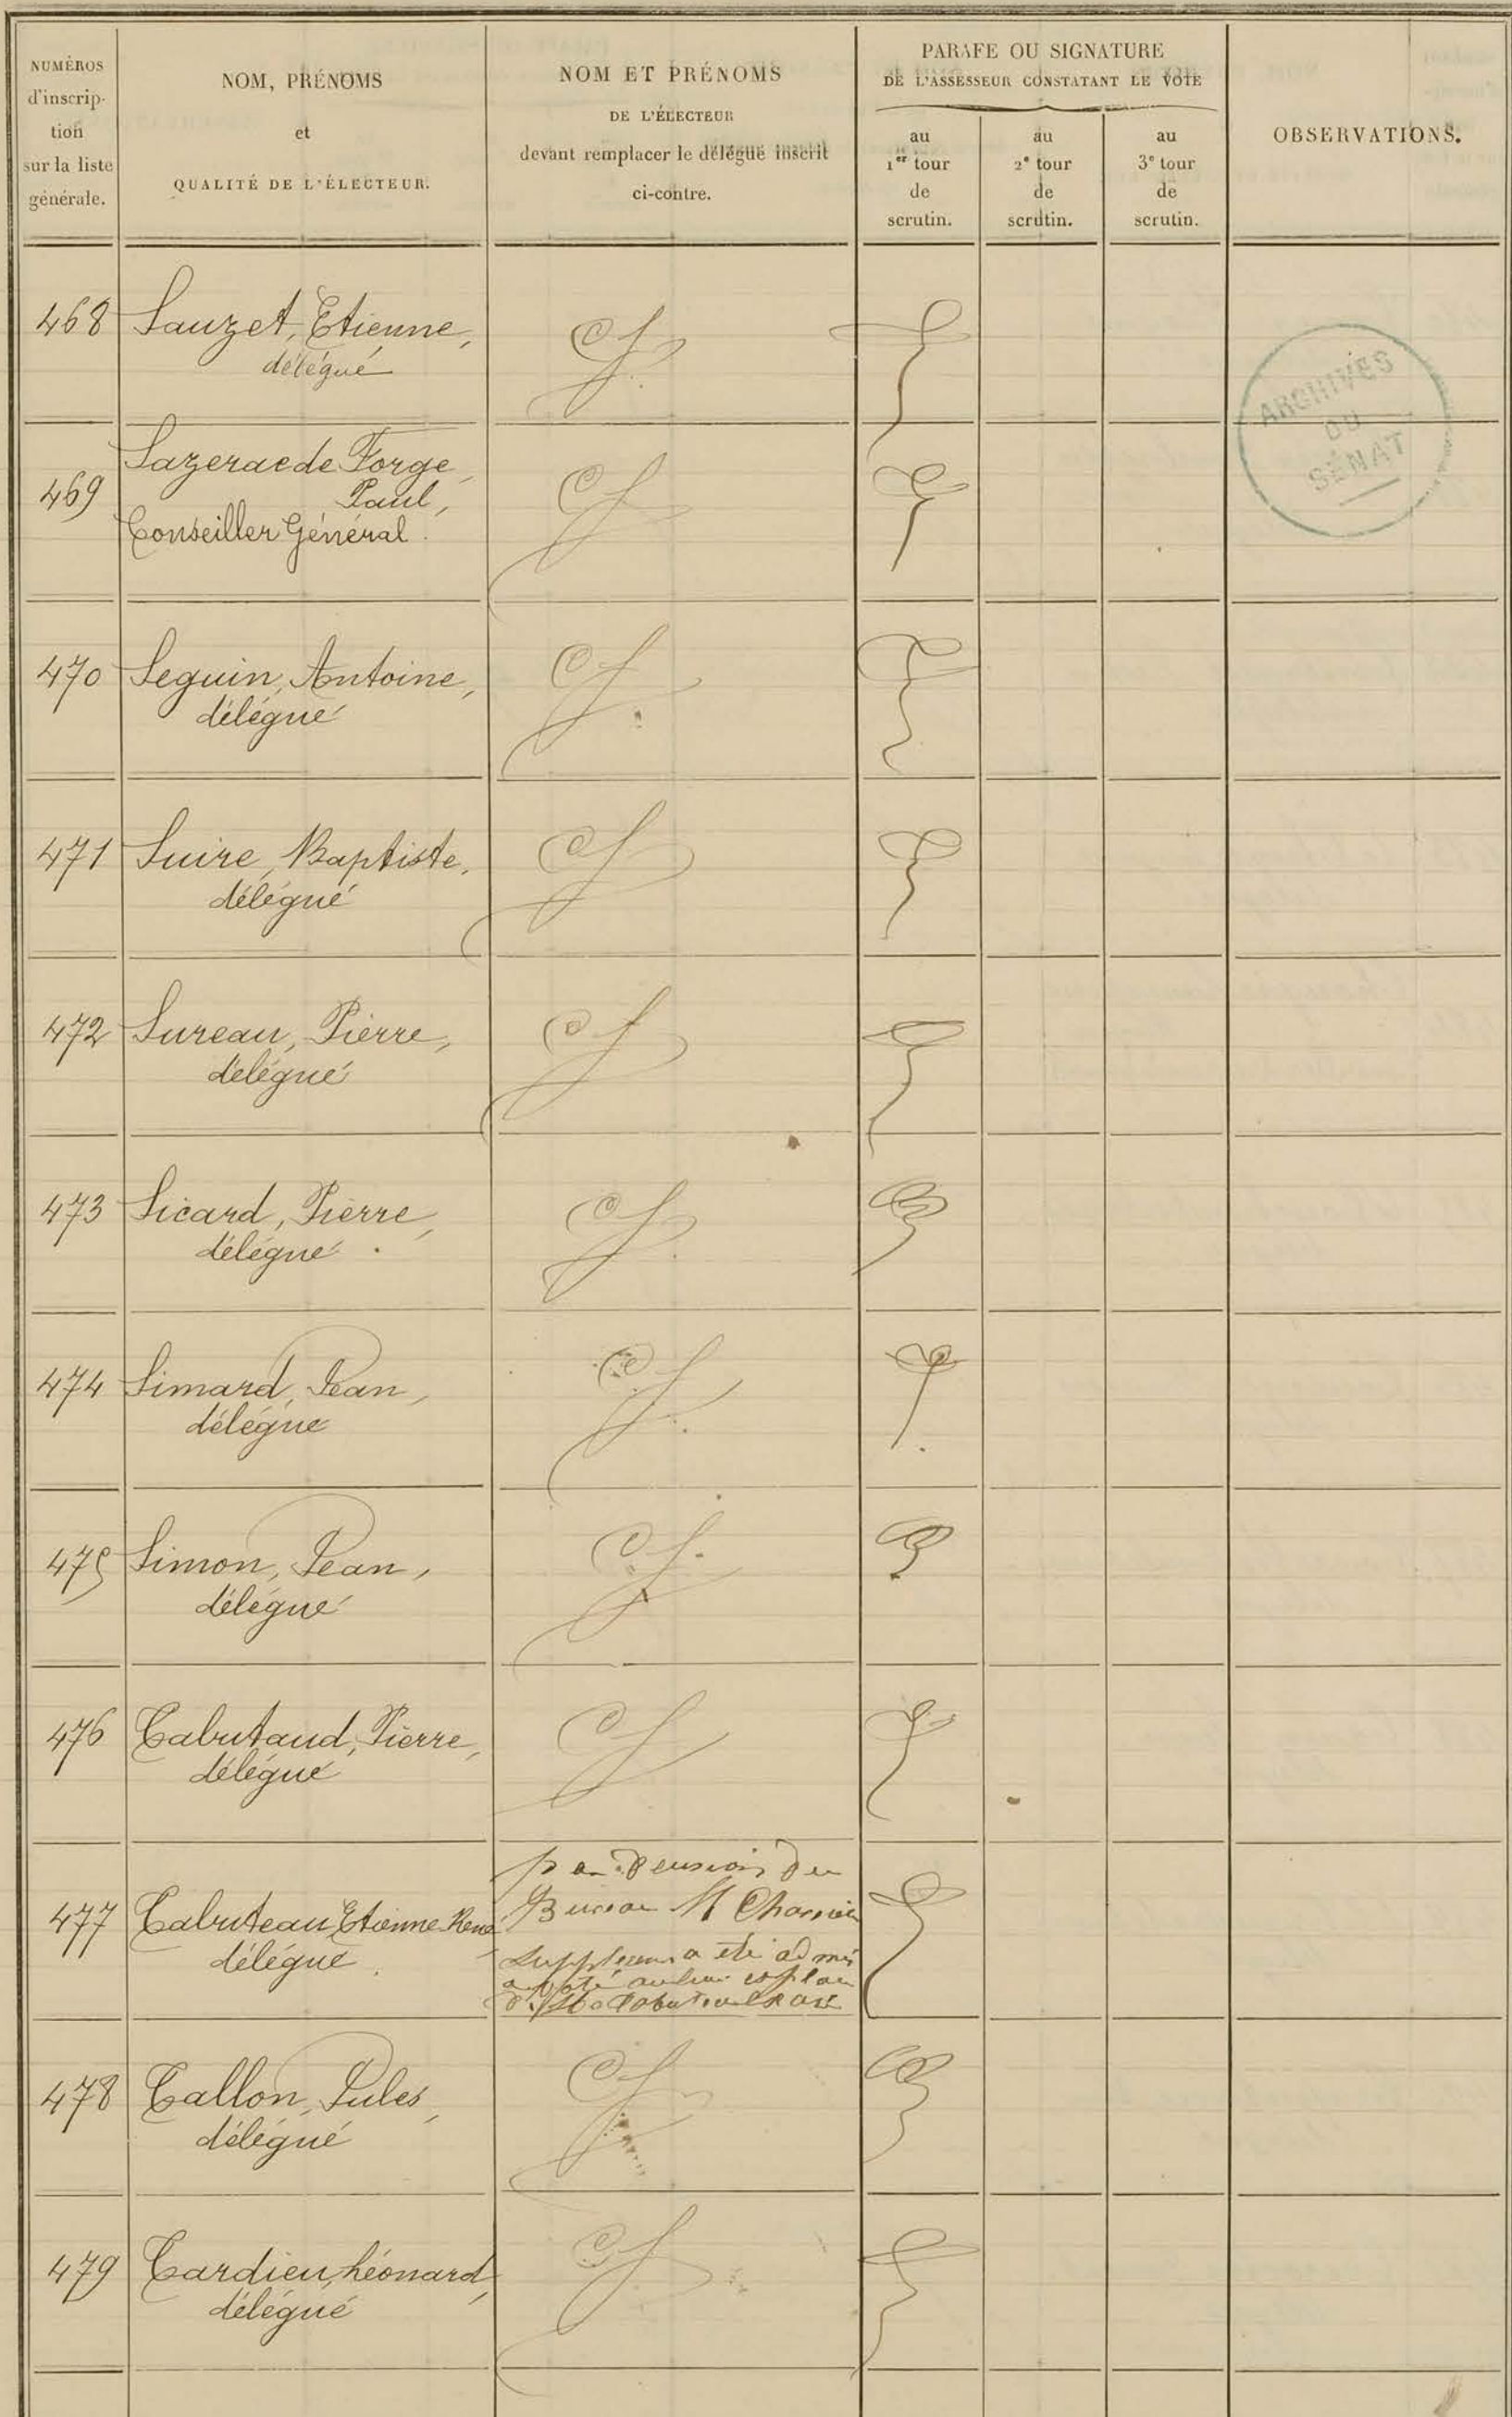 NUMÉROS
d'inscrip-
tion
sur la liste
générale.
NOM, PRÉNOMS
et
QUALITÉ DE L'ÉLECTEUR.
NOM ET PRÉNOMS
DE L'ÉLECTEUR
devant remplacer le délégué inscrit
ci-contre.
PARAFE OU SIGNATURE
DE L'ASSESSEUR CONSTATANT LE VOTE
au
1er tour
de
scrutin.
au
2e tour
de
scrutin.
au
3e tour
de
scrutin.
OBSERVATIONS.
468 Sauzet, Etienne,
délégué
ARCHIVES
DU
SÉNAT
Sazerac de Forge,
469 Paul,
Conseiller Général.
470 Seguin, Antoine,
délégué
471 Suire, Baptiste,
délégué
472 Sureau, Pierre,
délégué
473 Sicard, Pierre,
délégué
474 Simard, Jean,
délégué
475 Simon, Jean,
délégué
476 Tabutaud, Pierre,
délégué
477 Tabuteau, Etienne René,
délégué.
par décision du
Bureau M
suppléant a été admis
a voté au lieu et place
478 Tallon, Jules,
délégué
479 Tardieu, Léonard,
délégué